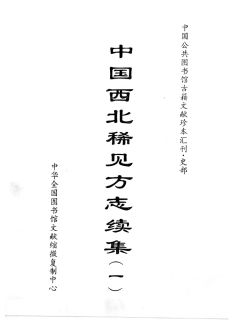 中国公共图书馆古籍文献珍本汇刊·史部
中国西北稀见方志续集（一）
中华全国图书馆文献缩微复制中心